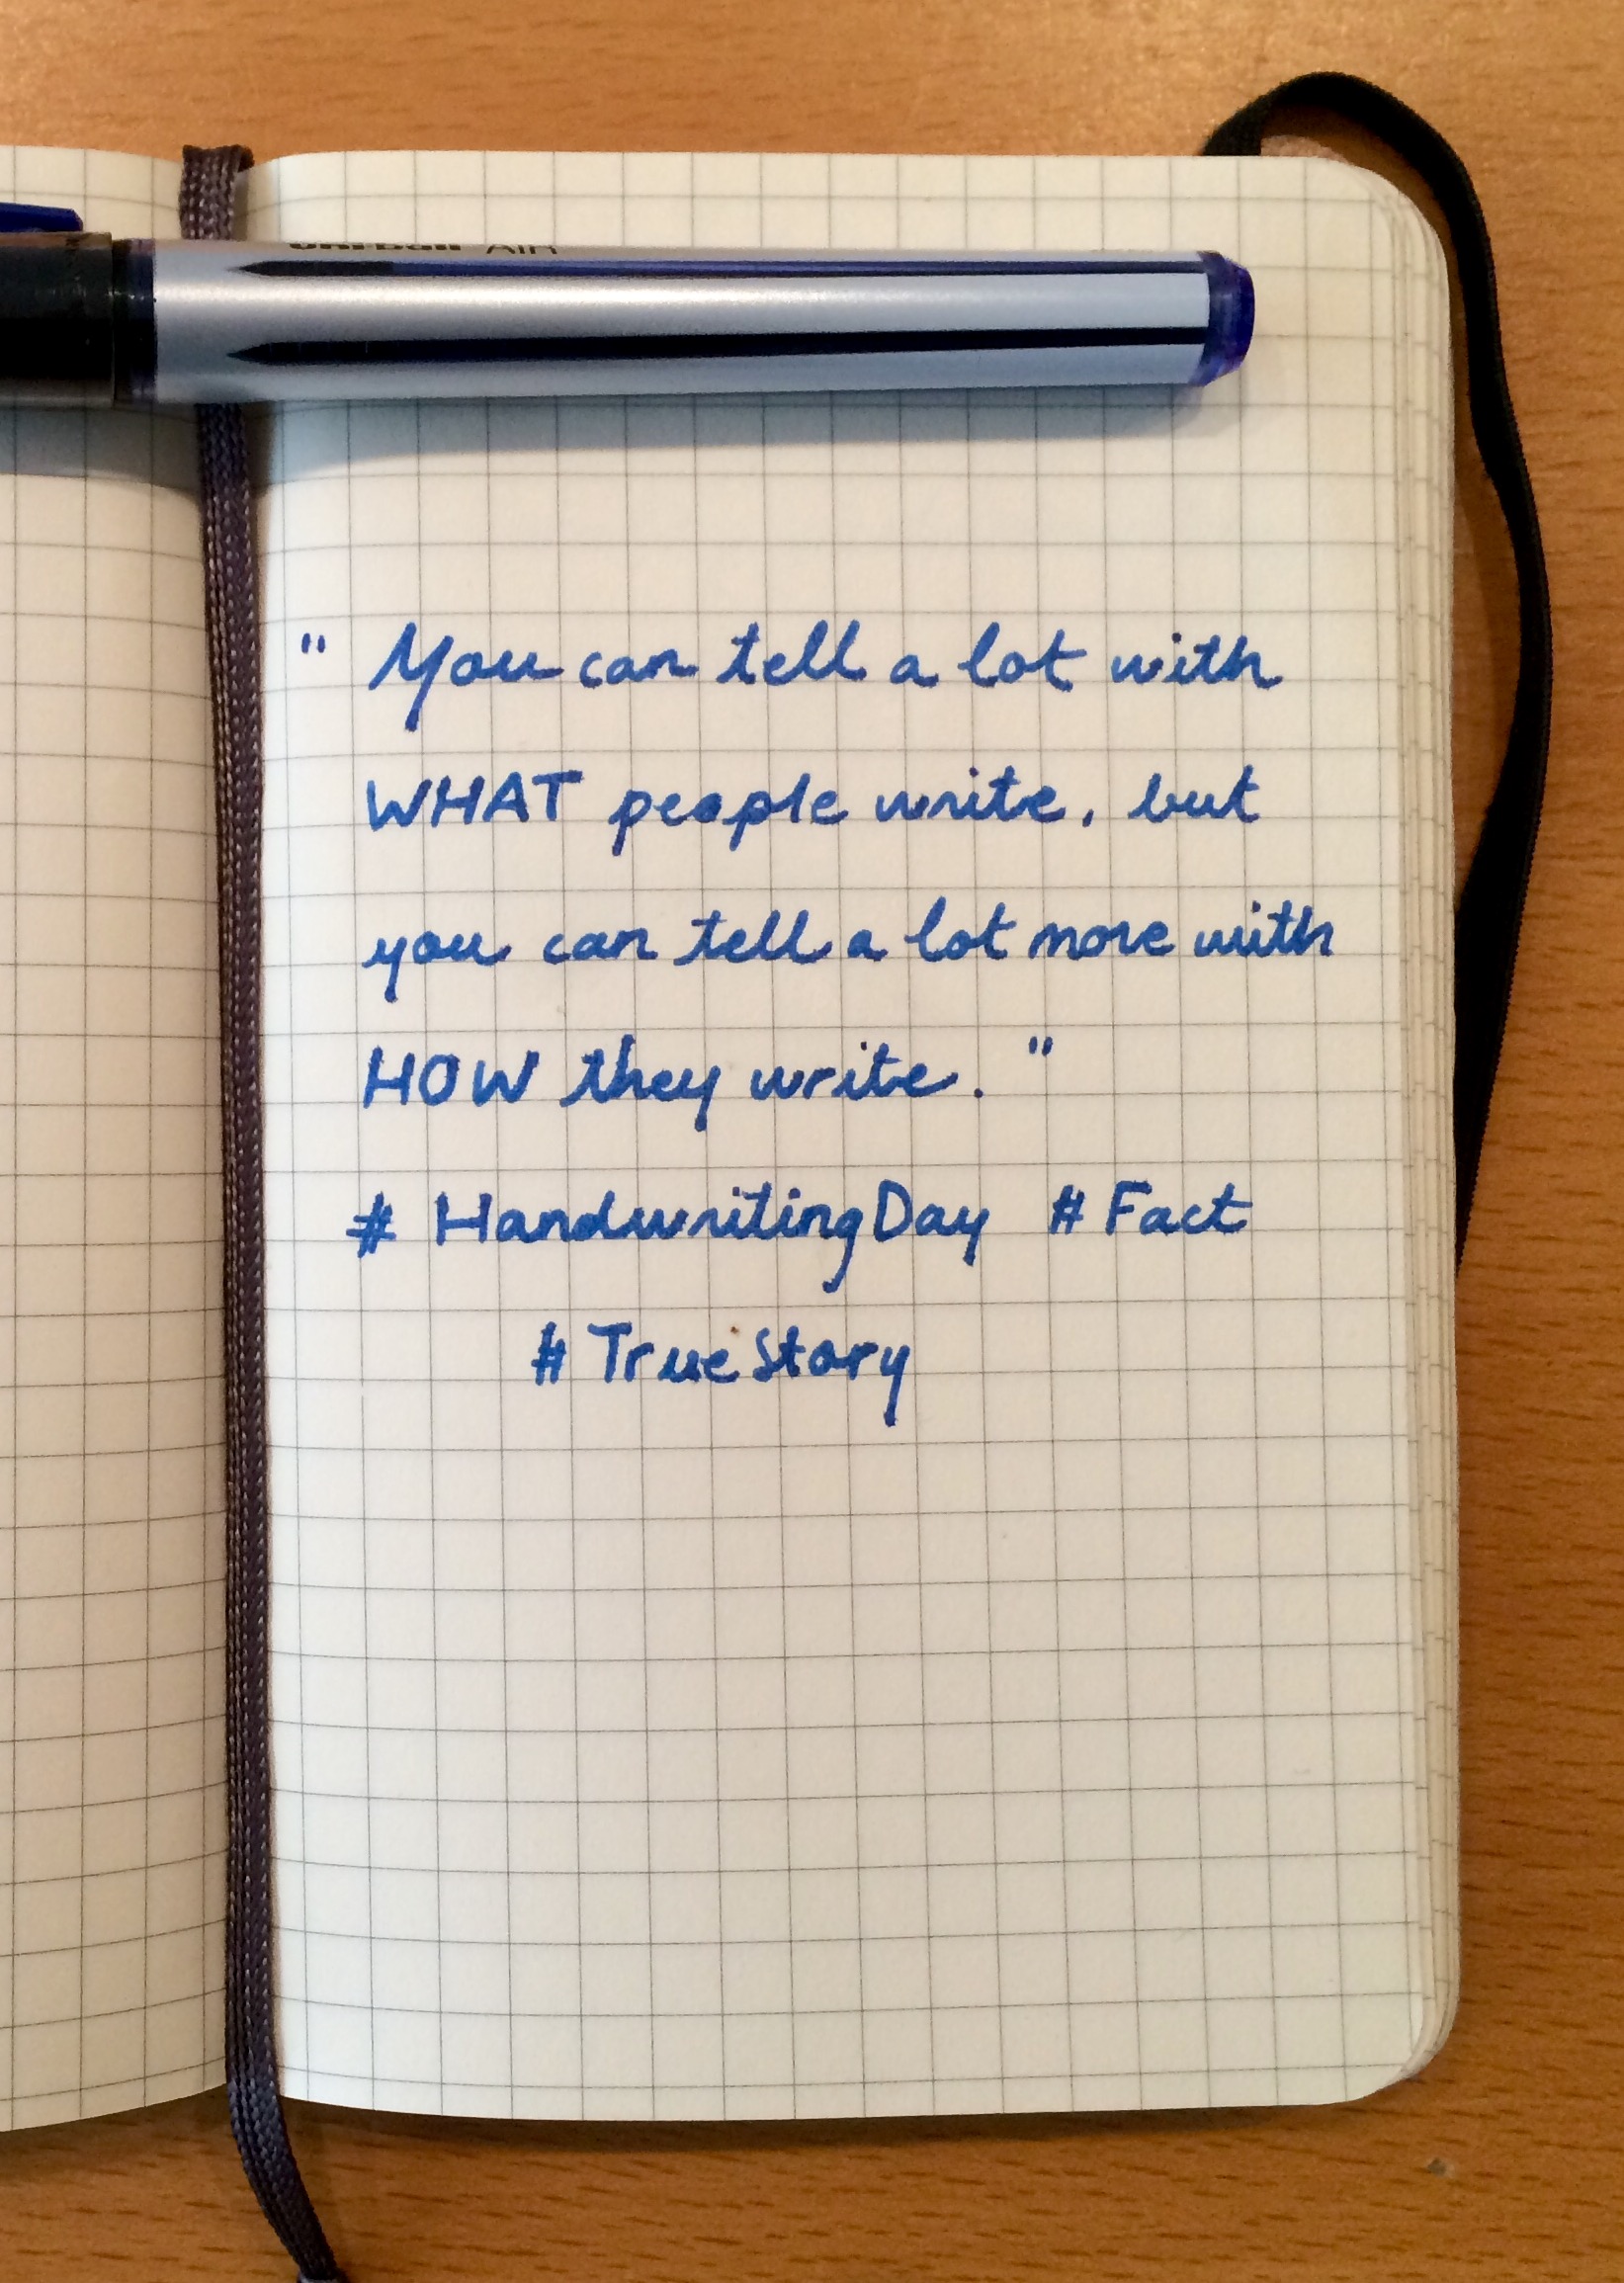 uni-ball AIR
" You can tell a lot with
WHAT people write, but
you can tell a lot more with
HOW they write. "
# HandwritingDay # Fact
# TrueStory